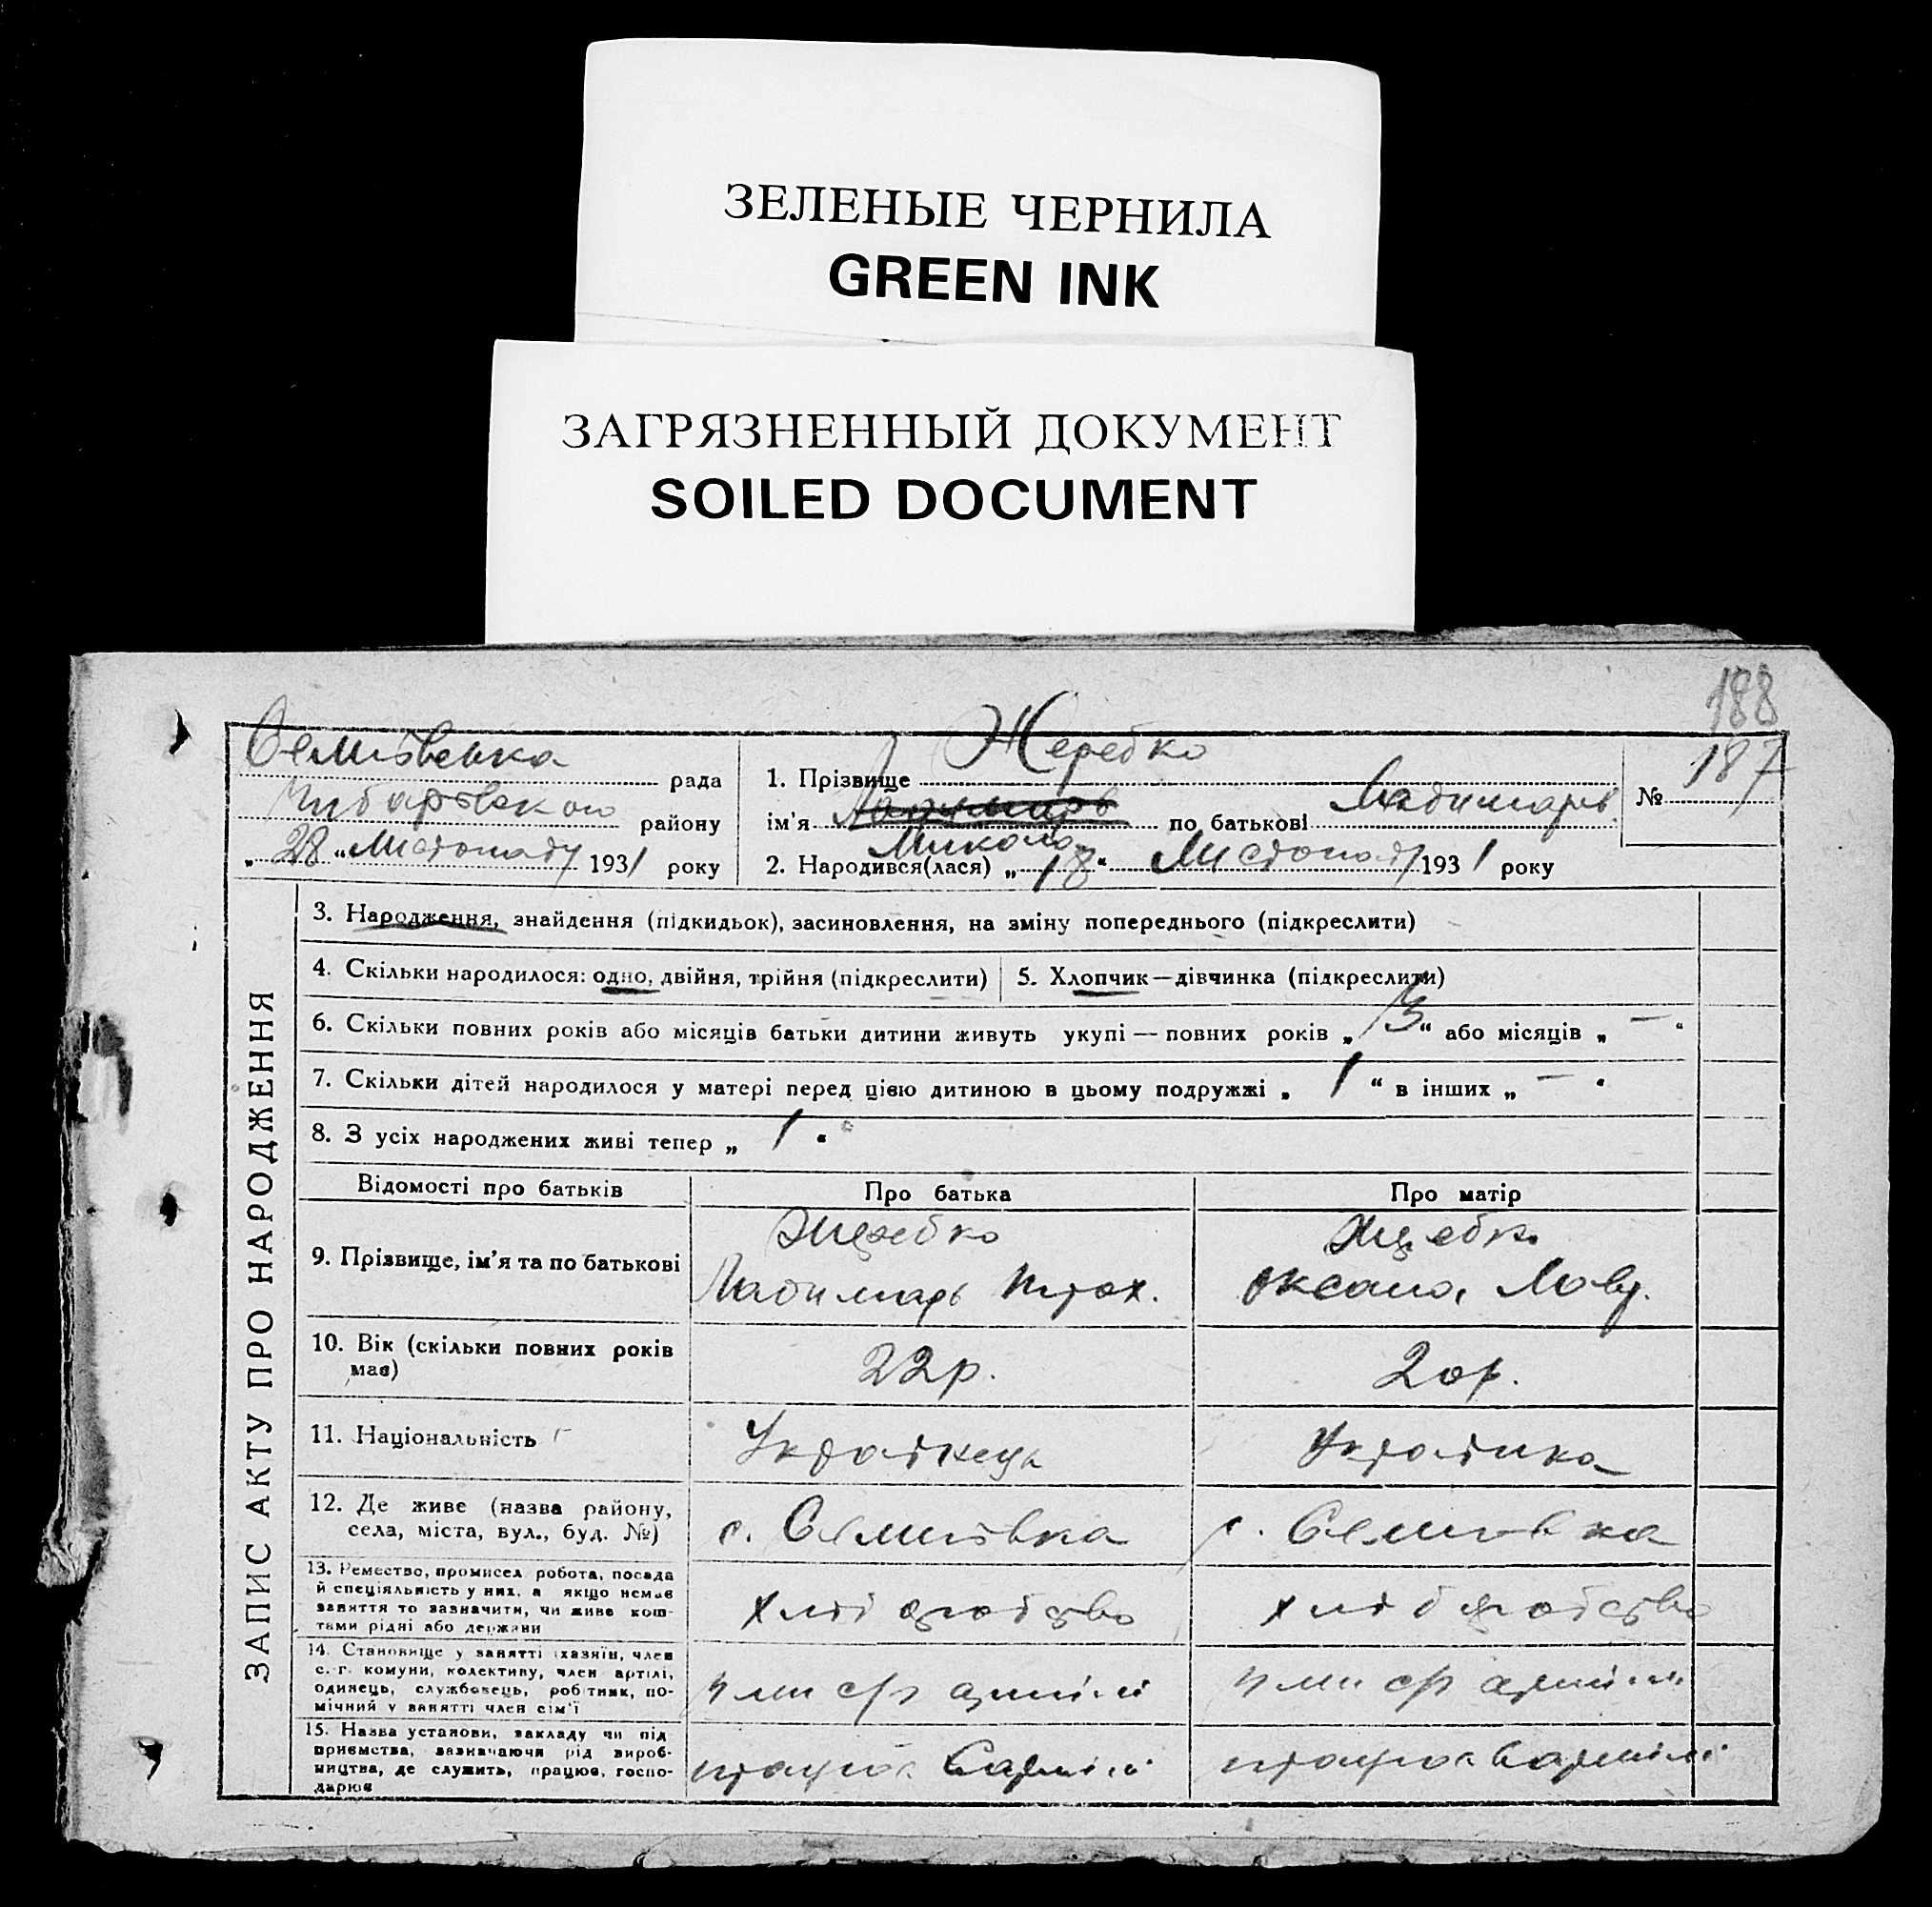 ЗЕЛЕНЫЕ ЧЕРНИЛА
GREEN INK
ЗАГРЯЗНЕННЫЙ ДОКУМЕНТ
SOILED DOCUMENT
188
187
рада
району
„ 28 “ Листопаду 1931 року
1. Прізвище Жеребко
ім'я по батькові Ладимарів
Микола
№
2. Народився(лася) „ 18 “ Листопаду 1931 року
ЗАПИС АКТУ ПРО НАРОДЖЕННЯ
3. Народження, знайдення (підкидьок), засиновлення, на зміну попереднього (підкреслити)
4. Скільки народилося: одно, двійня, трійня (підкреслити)
5. Хлопчик — дівчинка (підкреслити)
6. Скільки повних років або місяців батьки дитини живуть укупі — повних років „ 3 “ або місяців „ — “
7. Скільки дітей народилося у матері перед цією дитиною в цьому подружжі „ 1 “ в інших „ — “
8. З усіх народжених живі тепер „ 1 “
Відомості про батьків
Про батька
Про матір
9. Прізвище, ім'я та по батькові
Жеребко
Ладимарь
Жеребко
Оксана
10. Вік (скільки повних років
має)
22р.
20р.
11. Національність
Українець
Українка
12. Де живе (назва району,
села, міста, вул., буд. №)
с. Семиївка
с. Семиївка
13. Ремество, промисел робота, посада
й спеціяльність у них, а якщо немає
заняття то зазначити, чи живе кош-
тами рідні або держави
Хліборобство
Хліборобство
14. Становище у занятті (хазяїн, член
с.-г. комуни, колективу, член артілі,
одинець, службовець, робітник, по-
мічний у занятті член сім'ї
член с/г артілі
член с/г артілі
15. Назва установи, закладу чи під
приємства, зазначаючи рід вироб-
ництва, де служить, працює, госпо-
дарює
працює в артілі
працює в артілі